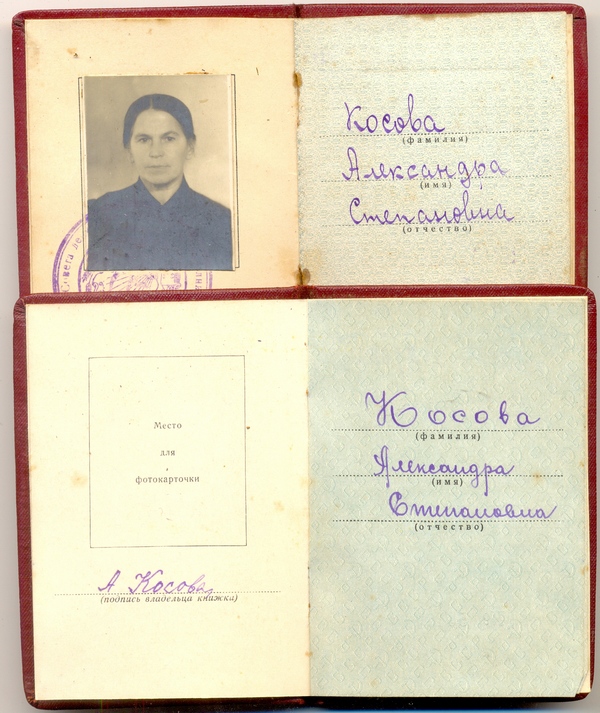 Косова
(фамилия)
Александра
(имя)
Степановна
(отчество)
Место
для
фотокарточки
А Косова
(подпись владельца книжки)
Косова
(фамилия)
Александра
(имя)
Степановна
(отчество)